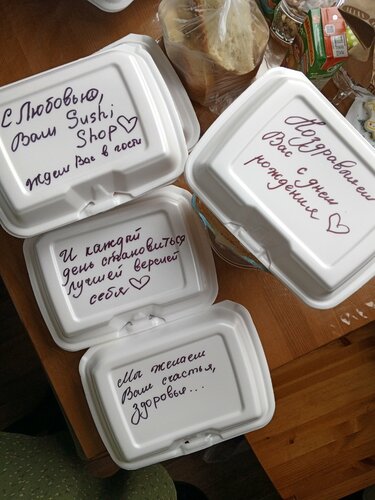 С Любовью,
Ваш Sushi
Shop♡
Ждём Вас в гости
Поздравляем
Вас с днём
рождения ♡
И каждый
день становиться
лучшей версией
себя♡
Мы желаем
Вам счастья,
Здоровья...